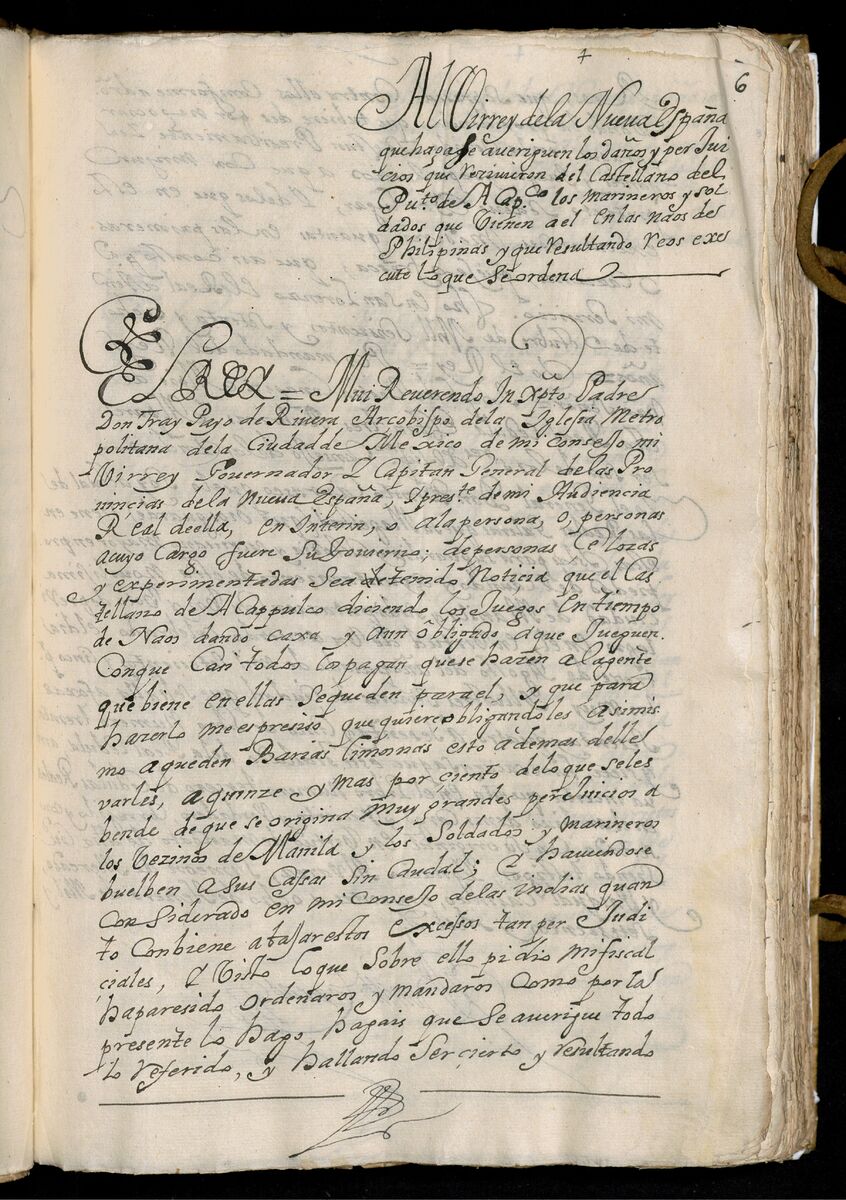 +
6
Al Virrey dela Nueva España
que haga se averiguen los daños y perJui
cios que reziuieron del Castellano del
Pu.to de ACap.co los marineros y sol
dados que Vienen ael en las naos de
Philipinas y que resultando reos exe
cute lo que se ordena
El Rey = Mui Reverendo In Xpto Padre
Don fray Payo de Rivera Arcobispo dela Iglesia Metro
politana dela Ciudad de Mexico de mi consejo mi
Virrey Gouernador Y Capitan General de las Pro
uincias de la Nueua España, Y pres.te de mi Audiencia
Real de ella, en Interin, o ala persona, o, personas
acuyo Cargo fuere Su Govierno; de personas Celozas
y experimentadas Sea detenido Noticia que el Cas
tellano de ACappulco diciendo los Juegos En tiempo
de Naos dando caxa y aun obligando aque Jueguen
Conque Casi todos los pagan que se hazen a la gente
que biene en ellas se queden para el, y que para
hazerlo me es presiso que quiere obligandoles asimis
mo aqueden Barias limosnas esto ademas delle
varles, aquinze y mas por ciento delo que se les
bende de que se origina muy grandes perJuicios a
los Vezinos de Manila y los Soldados y marineros
buelben a sus Cassas Sin Caudal; Y haviendose
Considerado en mi Consejo de las indias quan
to conbiene atajar estos excessos tan per Judi
ciales, Y Visto loque Sobre ello pidio mi fiscal
ha paresido ordenaros y mandaros Como por la
presente lo hago hagais que Se averigue todo
lo referido, y hallando Ser cierto y resultando